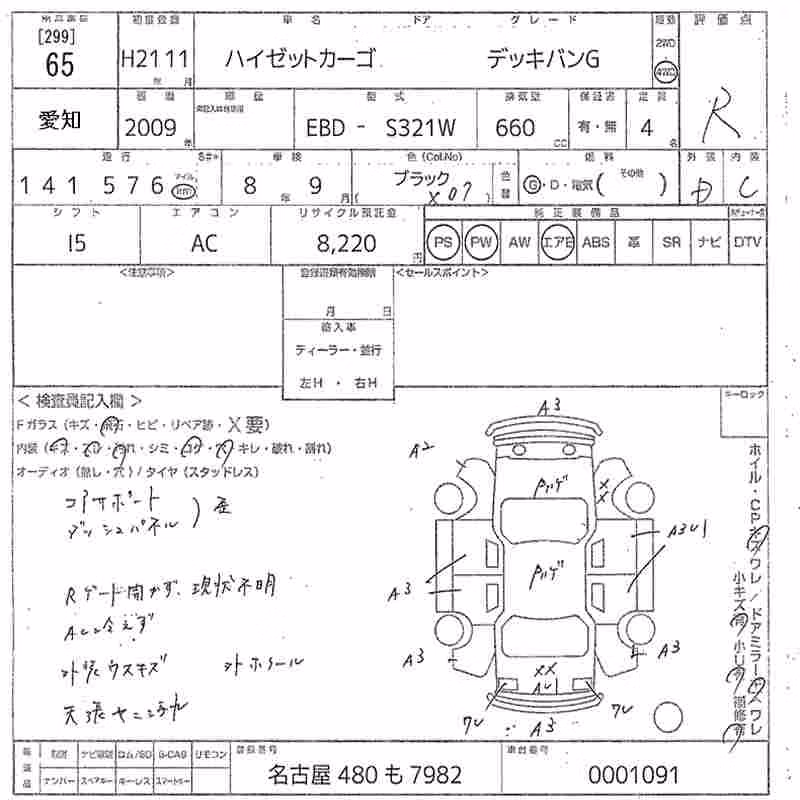 出品番号 初度登録 車名 ドア グレード 駆動 評価点
[299]
65 H21 11 ハイゼットカーゴ デッキバンG 2WD 4WD R
年 月
愛知 2009 年 型式 EBD - S321W 排気量 660 CC 保証書 有・無 定員 4 名
走行 車検 色 (Col.No) 燃料 外装 内装
141576 マイル 8 年 9 月 ブラック X07 色替 G・D・電気 ( その他 ) D C
シフト エアコン リサイクル預託金 純正装備品
I5 AC 8,220 円 PS PW AW エアB ABS 革 SR ナビ DTV
<注意事項> <セールスポイント>
月 日
輸入車
ディーラー・並行
左H ・ 右H
< 検査員記入欄 > キーロック
Fガラス (キズ・飛石・ヒビ・リペア跡・X要)
内装 (キズ・スレ・汚れ・シミ・コゲ・穴・キレ・破れ・割れ)
オーディオ (無し・穴) / タイヤ (スタッドレス)
コアサポート
ダッシュパネル ) 歪
Rゲート開かず、現状不明
ACン冷えず
外装ウスキズ 外ホイール
A3
A2
ハゲ
XX
A3U1
ハゲ
A3
A3 A3
XX
AU1
ワレ ワレ
A3
ホイール・CPキズワレ / ドアミラーキズワレ
小キズ有 小凹有 補修有
ナビ取説 ロム/SD B-CAS リモコン 登録番号 車台番号
ナンバー スペアキー キーレス スマートキー 名古屋 480 も 7982 0001091